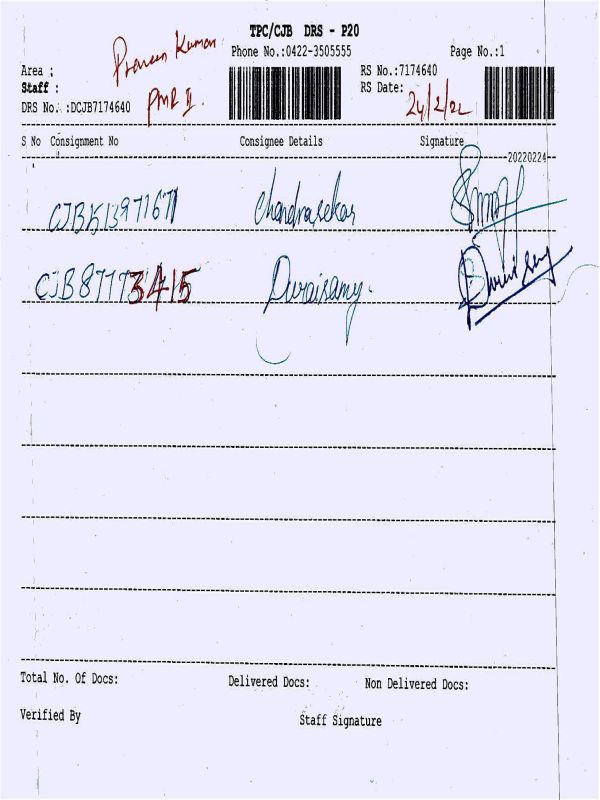 TPC/CJB DRS - P20
Praveen Kumar
Phone No.:0422-3505555 Page No.:1
Area :
Staff :
RS No.:7174640
RS Date: 24/2/22
DRS No. :DCJB7174640 PMR II.
S No Consignment No Consignee Details Signature
20220224
Chandrasekar
Duraisamy.
Total No. Of Docs: Delivered Docs: Non Delivered Docs:
Verified By Staff Signature